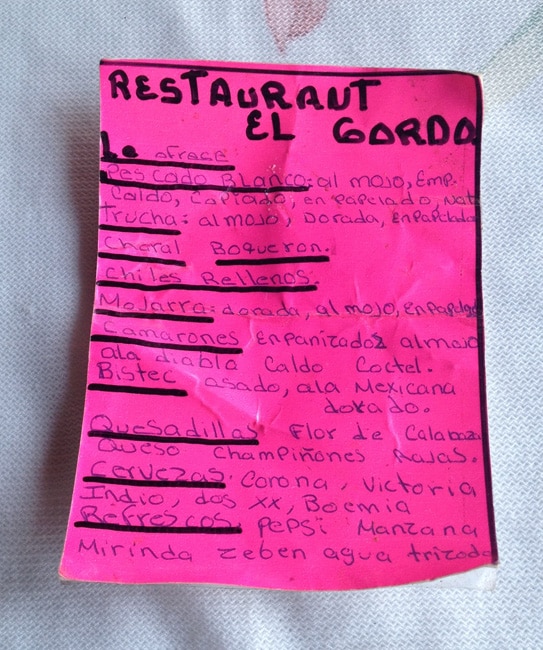 RESTAURANT
EL GORDO
Le ofrece
Pescado Blanco: al mojo, Emp.
Caldo, Capiado, en papelado, Nat
Trucha: al mojo, Dorada, Enpapelada
Charal Boqueron.
Chiles Rellenos.
Mojarra: dorada, al mojo, Enpapelado
Camarones Enpanizados almojo
ala diabla Caldo Coctel.
Bistec asado, ala Mexicana
dorado.
Quesadillas Flor de Calabaza
Queso Champiñones Rajas.
Cervezas Corona, Victoria
Indio, dos XX, Boemia
Refrescos, Pepsi Manzana
Mirinda zeben agua trizada